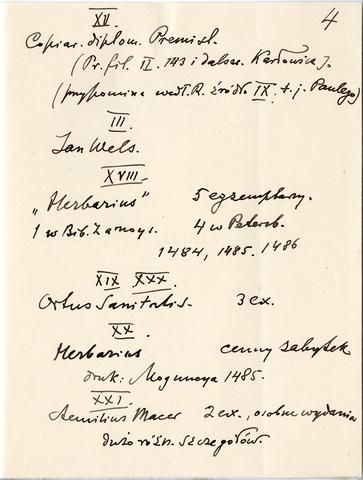 4
XV.
Copiar. diplom. Premisl.
(Pr. fil. IV. 143 i dalsze. Karłowicz J.
(przypomina wedł. R. źródło IX t. j. Paulego)
III.
Jan Wels.
XVIII.
„Herbarius” 5 egzemplarzy.
1 w Bib. Zamoys. 4 w Petersb.
1484, 1485. 1486
XIX XXX.
Ortus Sanitatis. 3 ex.
XX.
Herbarius cenny zabytek
druk: Moguncya 1485.
XXI.
Aemilius Macer 2 ex., osobne wydania
dużo różn. szczegółów.